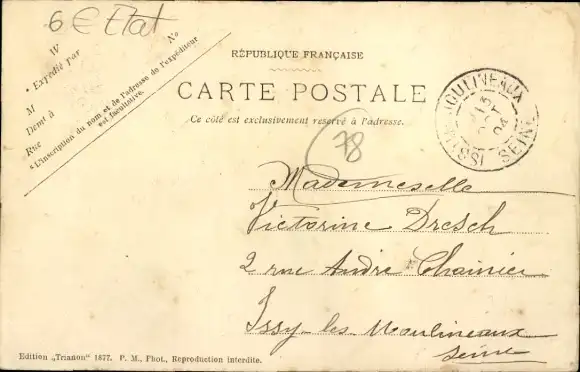 6 € Etat
Nº
M
* Expédié par
M
Demt à
Rue
*L'inscription du nom et de l'adresse de l'expéditeur
est facultative.
RÉPUBLIQUE FRANÇAISE
CARTE POSTALE
Ce côté est exclusivement réservé à l'adresse.
78
MOULINEAUX
ISSY
SEINE
04
Mademeselle
Victorine Dresch
2 rue Andre Chainier
Issy-les Moulineaux
Seine
Edition „Trianon" 1877. P. M., Phot., Reproduction interdite.